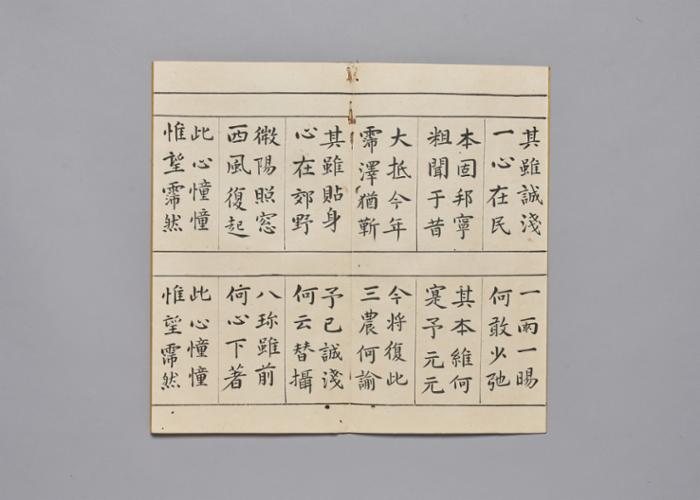 其雖誠淺
一心在民
本固邦寧
粗聞于昔
大抵今年
霈澤猶靳
其雖貼身
心在郊野
微陽照窓
西風復起
此心憧憧
惟望霈然
一雨一暘
何敢少弛
其本維何
寔予元元
今將復此
三農何諭
予已誠淺
何云替攝
八珎雖前
何心下著
此心憧憧
惟望霈然